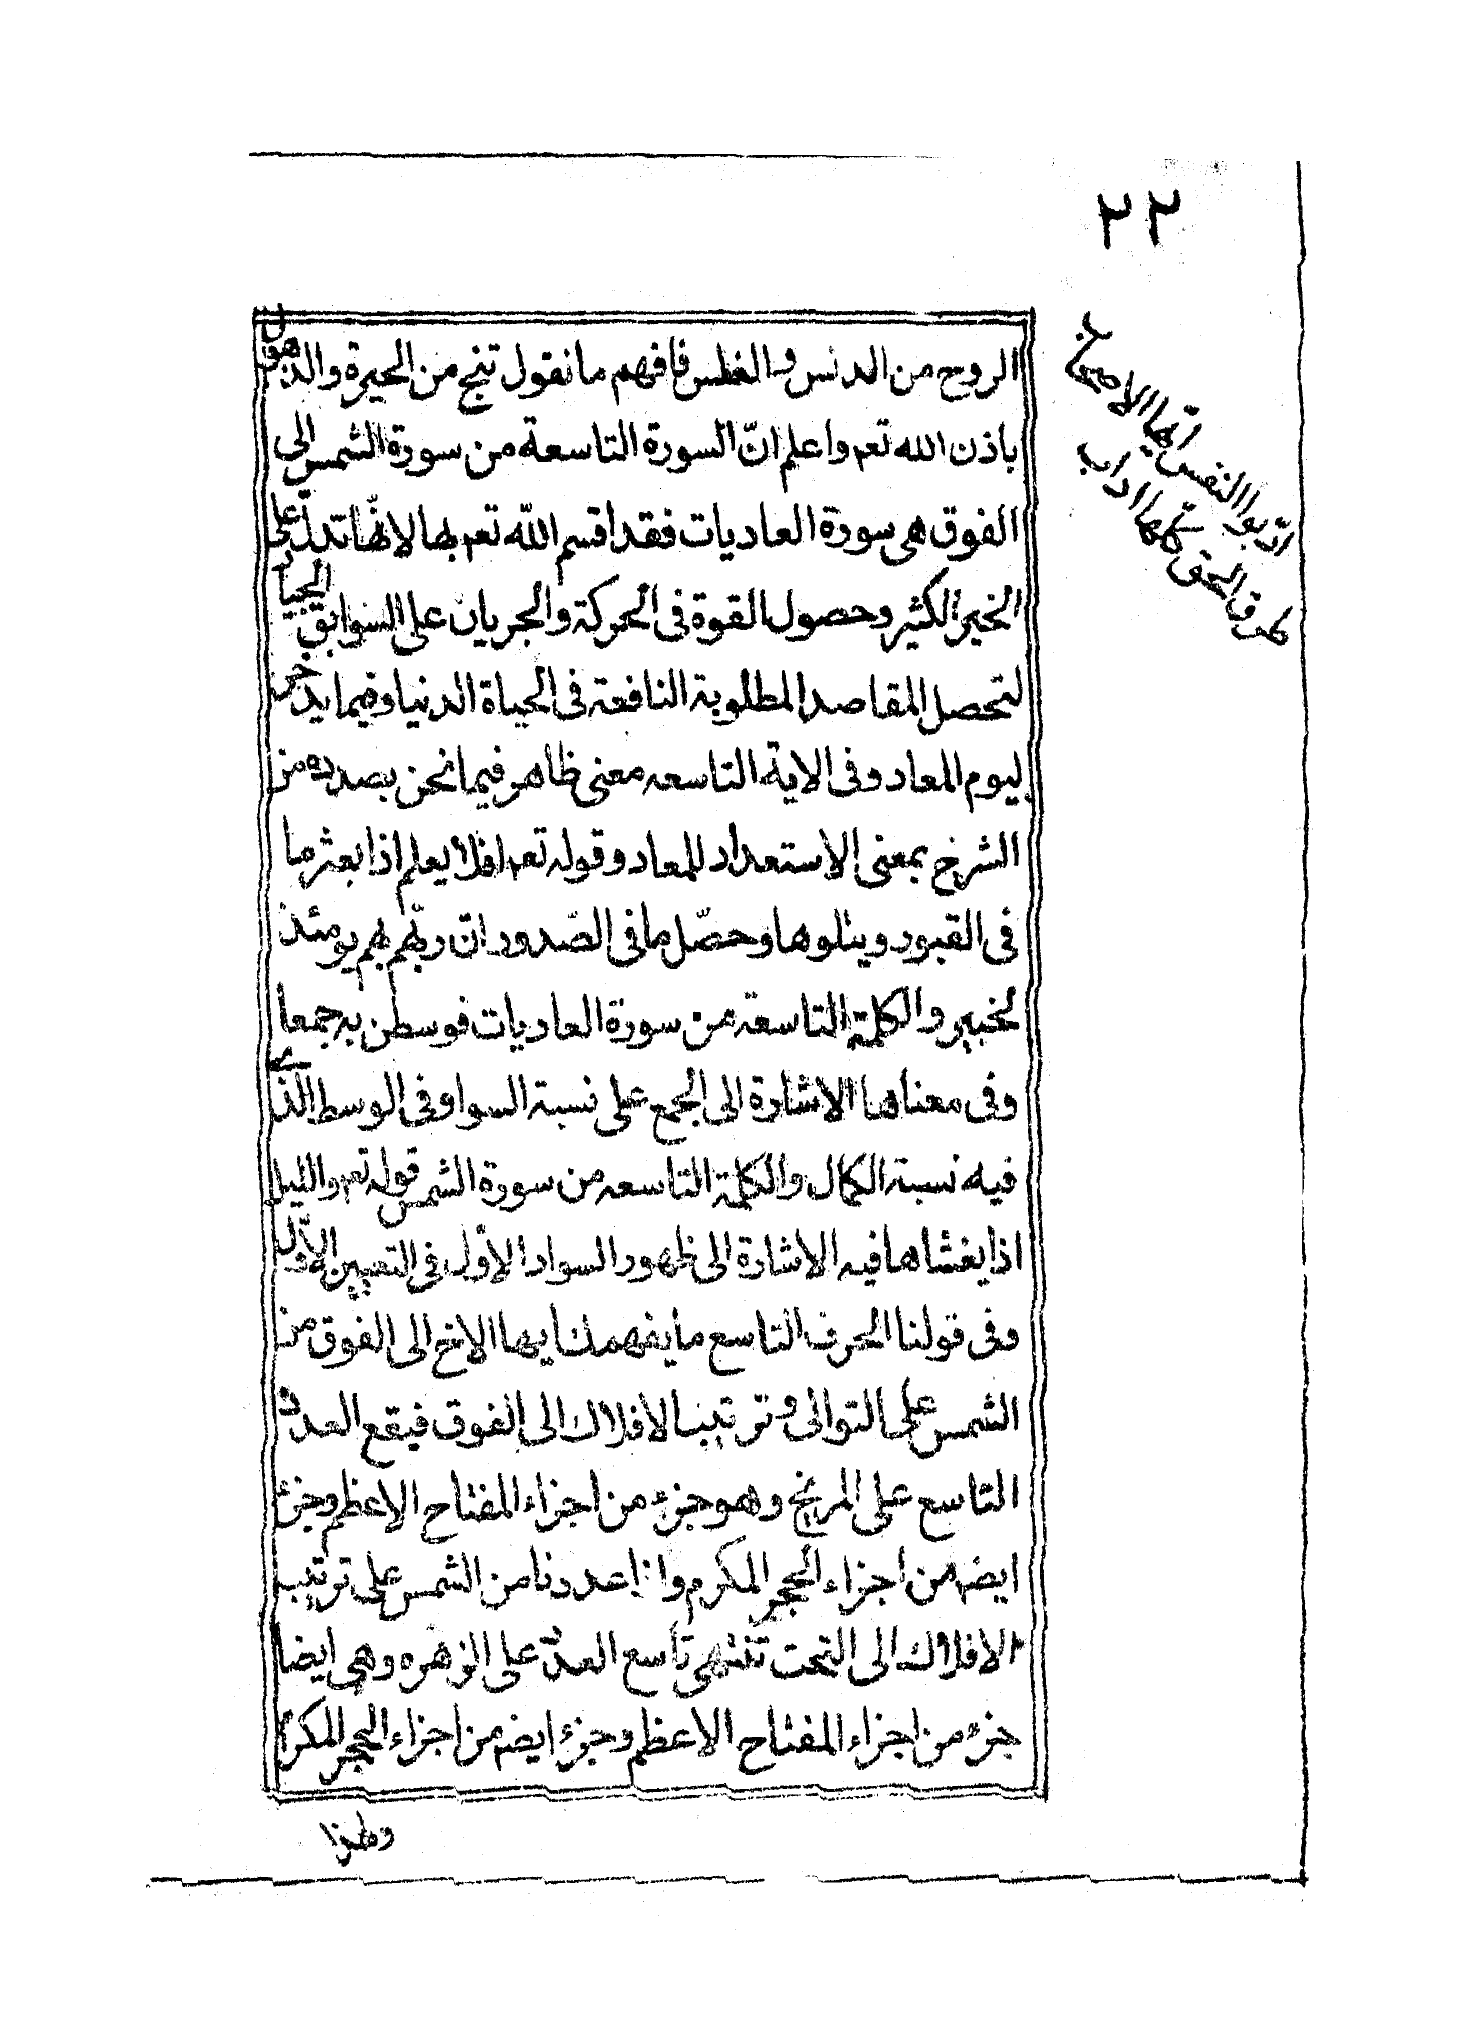 ٢٢
الروح من الدنس والغلس فافهم ما نقول تنج من الحيرة والذهول
باذن الله تعم واعلم انّ السورة التاسعة من سورة الشمس الى
الفوق هى سورة العاديات فقد اقسم اللّه تعم بها لانّها تدلّ على
الخير الكثير وحصول القوة فى الحركة والجريان على السوابق الجياد
لتحصل المقاصد المطلوبة النافعة فى الحياة الدنيا وفيما يدخر
ليوم المعاد وفى الاية التاسعه معنى ظاهر فيما نحن بصدده من
الشرح بمعنى الاستعداد للمعاد وقوله تعم افلا يعلم اذا بعثر ما
فى القبور ويتلوها وحصّل ما فى الصّدور انّ ربّهم بهم يومئذ
لخبير والكلمة التاسعة من سورة العاديات فوسطن به جمعا
وفى معناها الاشارة الى الجمع على نسبة السوا وفى الوسط الّذى
فيه نسبة الكمال والكلمة التاسعه من سورة الشمس قوله تعم والليل
اذا يغشاها فيه الاشارة الى ظهور السواد الأول فى التعيين الاوّل
وفى قولنا الحرف التاسع ما يفهمك ايها الاخ الى الفوق من
الشمس على التوالى وترتيب الافلاك الى الفوق فيقع العدد
التاسع على المريخ وهو جزء من اجزاء المفتاح الاعظم وجزء
ايضه من اجزاء الحجر المكرم واذا عددنا من الشمس على ترتيب
الافلاك الى التحت تنتهى تاسع العدد على الزهره وهى ايضا
جزء من اجزاء المفتاح الاعظم وجزء ايضه من اجزاء الحجر المكرم
ادّبوا النفس ايّها الاصحاب
طرق الحق كلها اداب